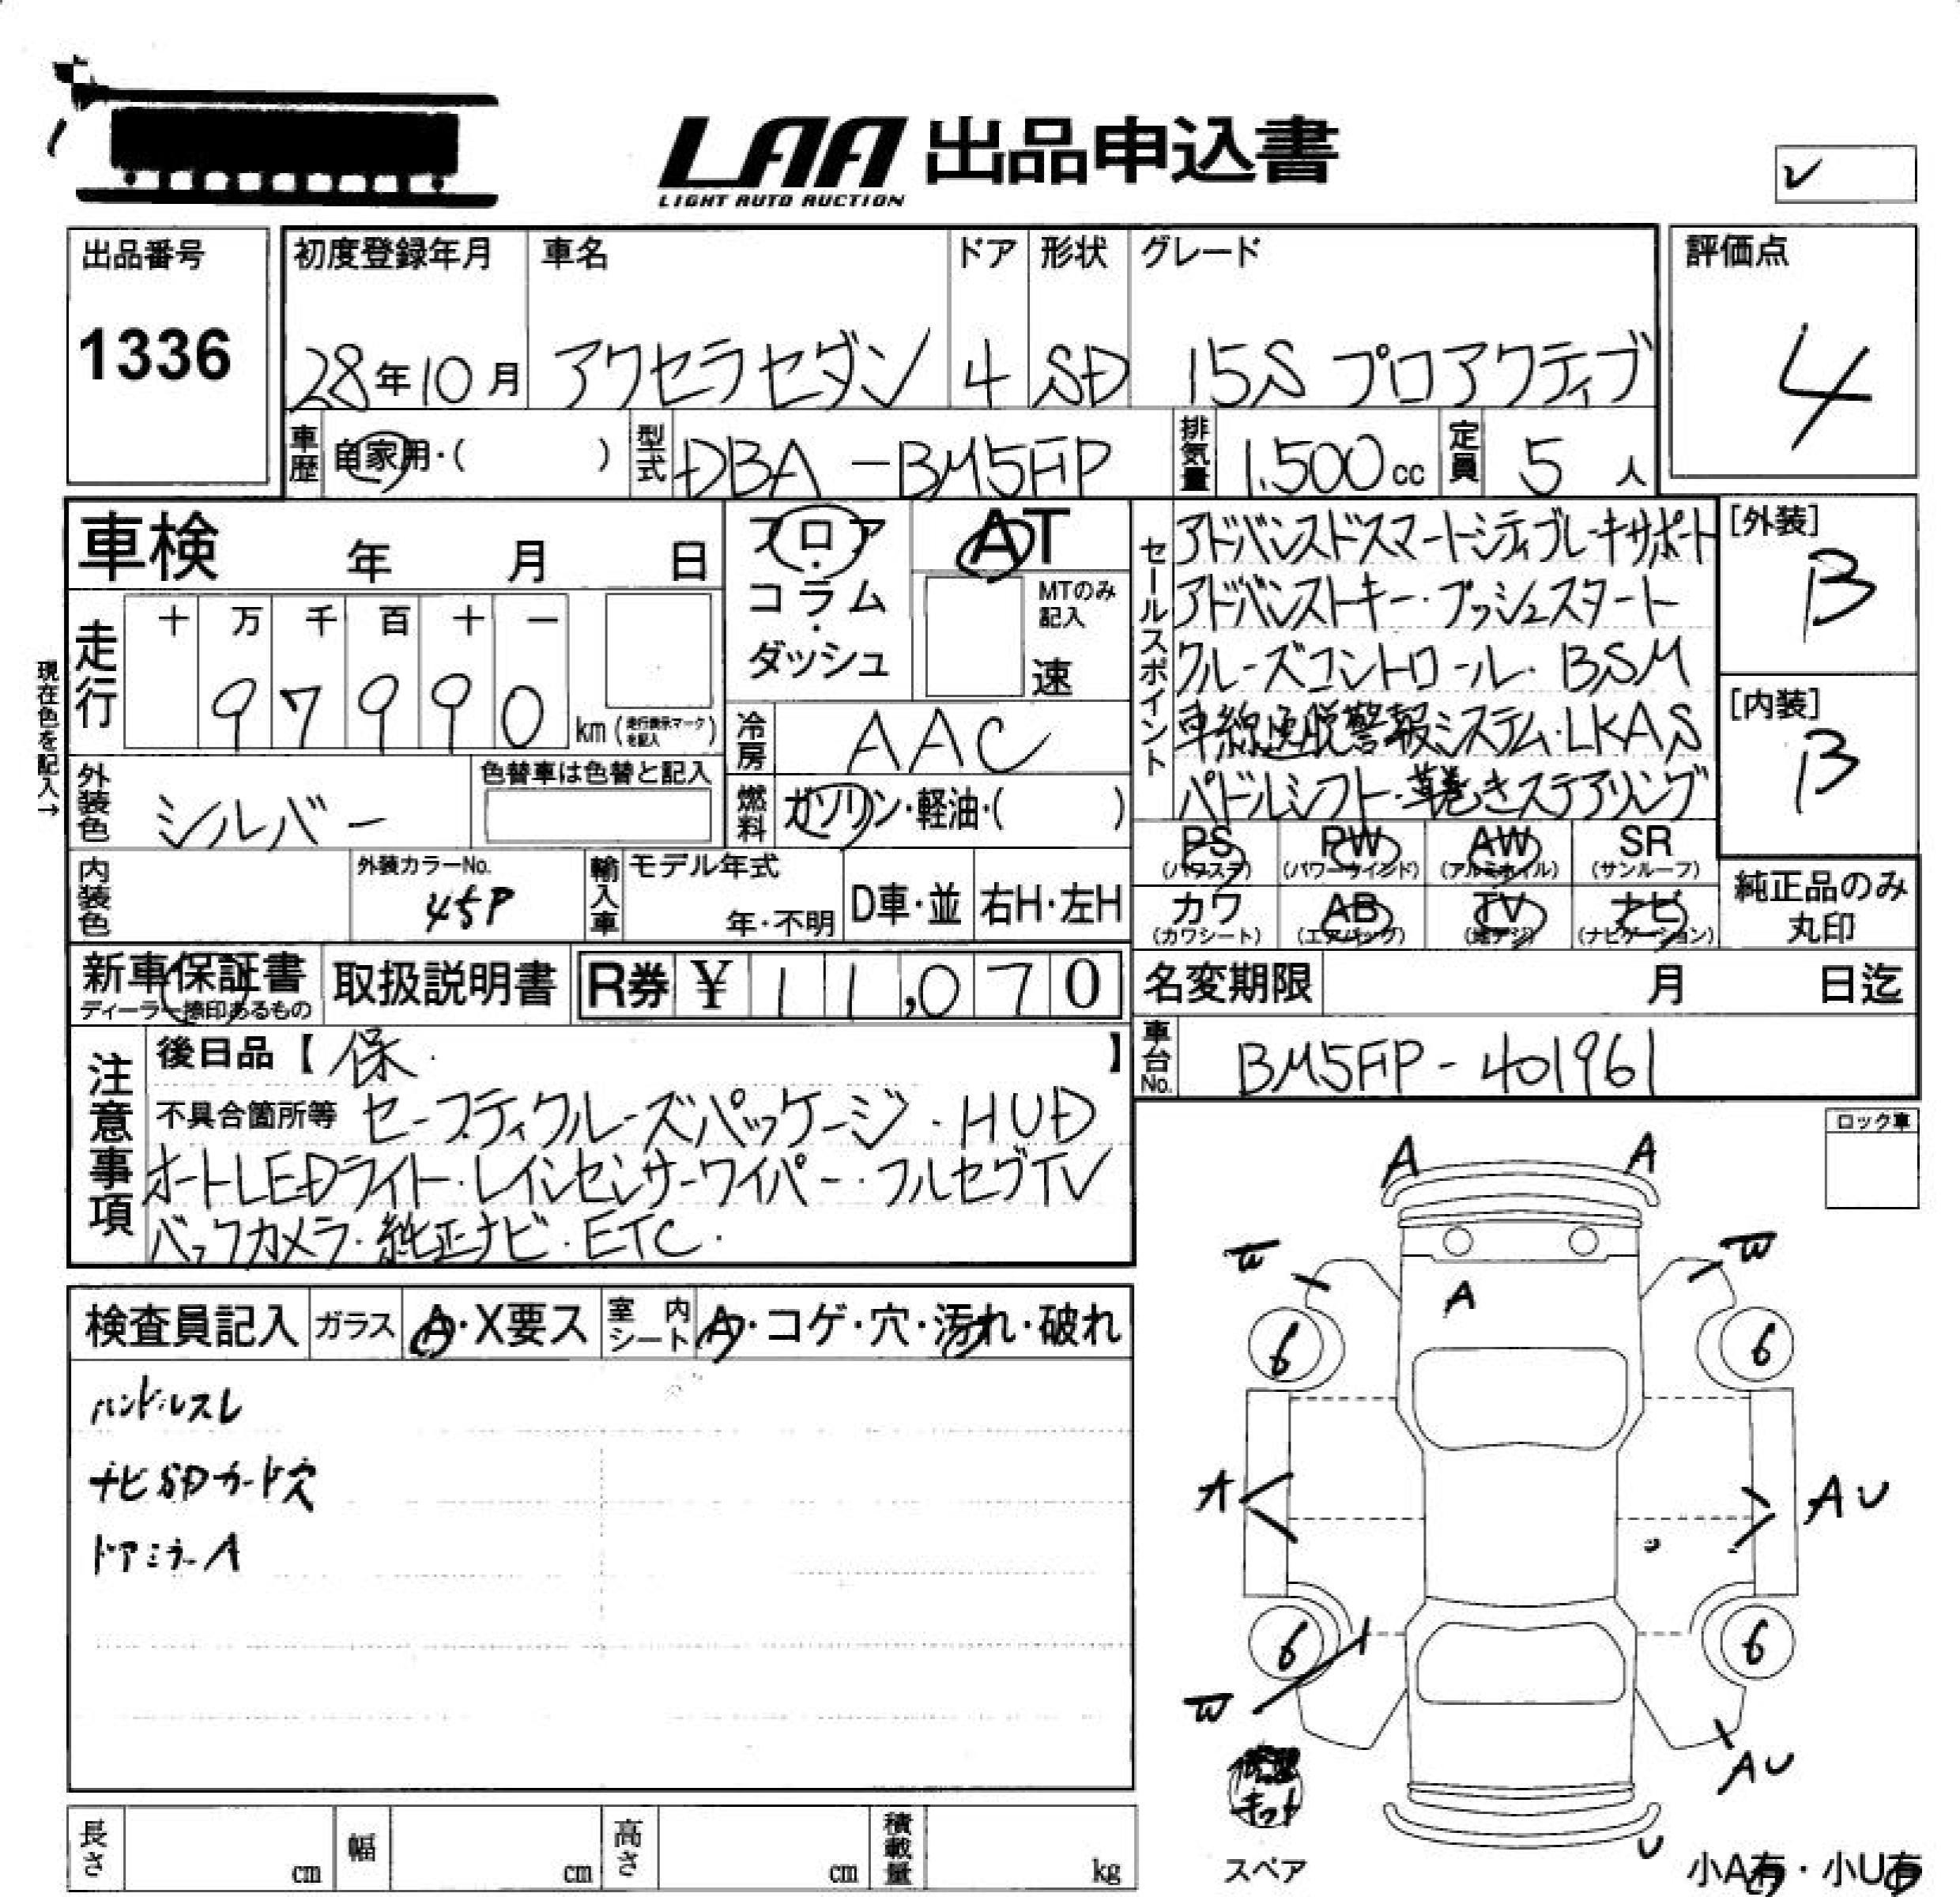 LAA 出品申込書
LIGHT AUTO AUCTION
出品番号 初度登録年月 車名 ドア 形状 グレード 評価点
1336 28年10月 アクセラセダン 4 SD 15S プロアクティブ 4
車歴 自家用・( ) 型式 DBA-BM5FP 排気量 1.500cc 定員 5人
車検 年 月 日
フロア・コラム・ダッシュ
AT
MTのみ記入
速
セールスポイント
アドバンスドスマートシティブレーキサポート
アドバンストキー・プッシュスタート
クルーズコントロール・BSM
車線逸脱警報システム・LKAS
パドルシフト・革巻きステアリング
[外装]
B
[内装]
B
現在色を記入→
走行 十 万 千 百 十 一
97990 km (走行表示マークを記入)
冷房 AAC
外装色 シルバー 色替車は色替と記入
燃料 ガソリン・軽油・( )
PS AW SR
PW
(パワステ) (パワーウインド) (アルミホイル) (サンルーフ)
カワ AB TV ナビ
(カワシート) (エアバッグ) (地デジ) (ナビゲーション)
純正品のみ丸印
内装色 外装カラーNo. 45P 輸入車 モデル年式 年・不明 D車・並 右H・左H
新車保証書 取扱説明書 R券 ¥ 11,070
ディーラー捺印あるもの
名変期限 月 日迄
車台No. BM5FP-401961
注意事項
後日品【保・】
不具合箇所等 セーフティクルーズパッケージ・HUD
オートLEDライト・レインセンサーワイパー・フルセグTV
バックカメラ・純正ナビ・ETC・
ロック車
検査員記入 ガラス A・X要ス 室内シート A・コゲ・穴・汚れ・破れ
ハンドルスレ
ナビSDカード穴
ドアミラーA
A A
W W
A
6 6
A AU
6 6
W
AU
修理キット
スペア
U
小A有・小U有
長さ cm 幅 cm 高さ cm 積載量 kg